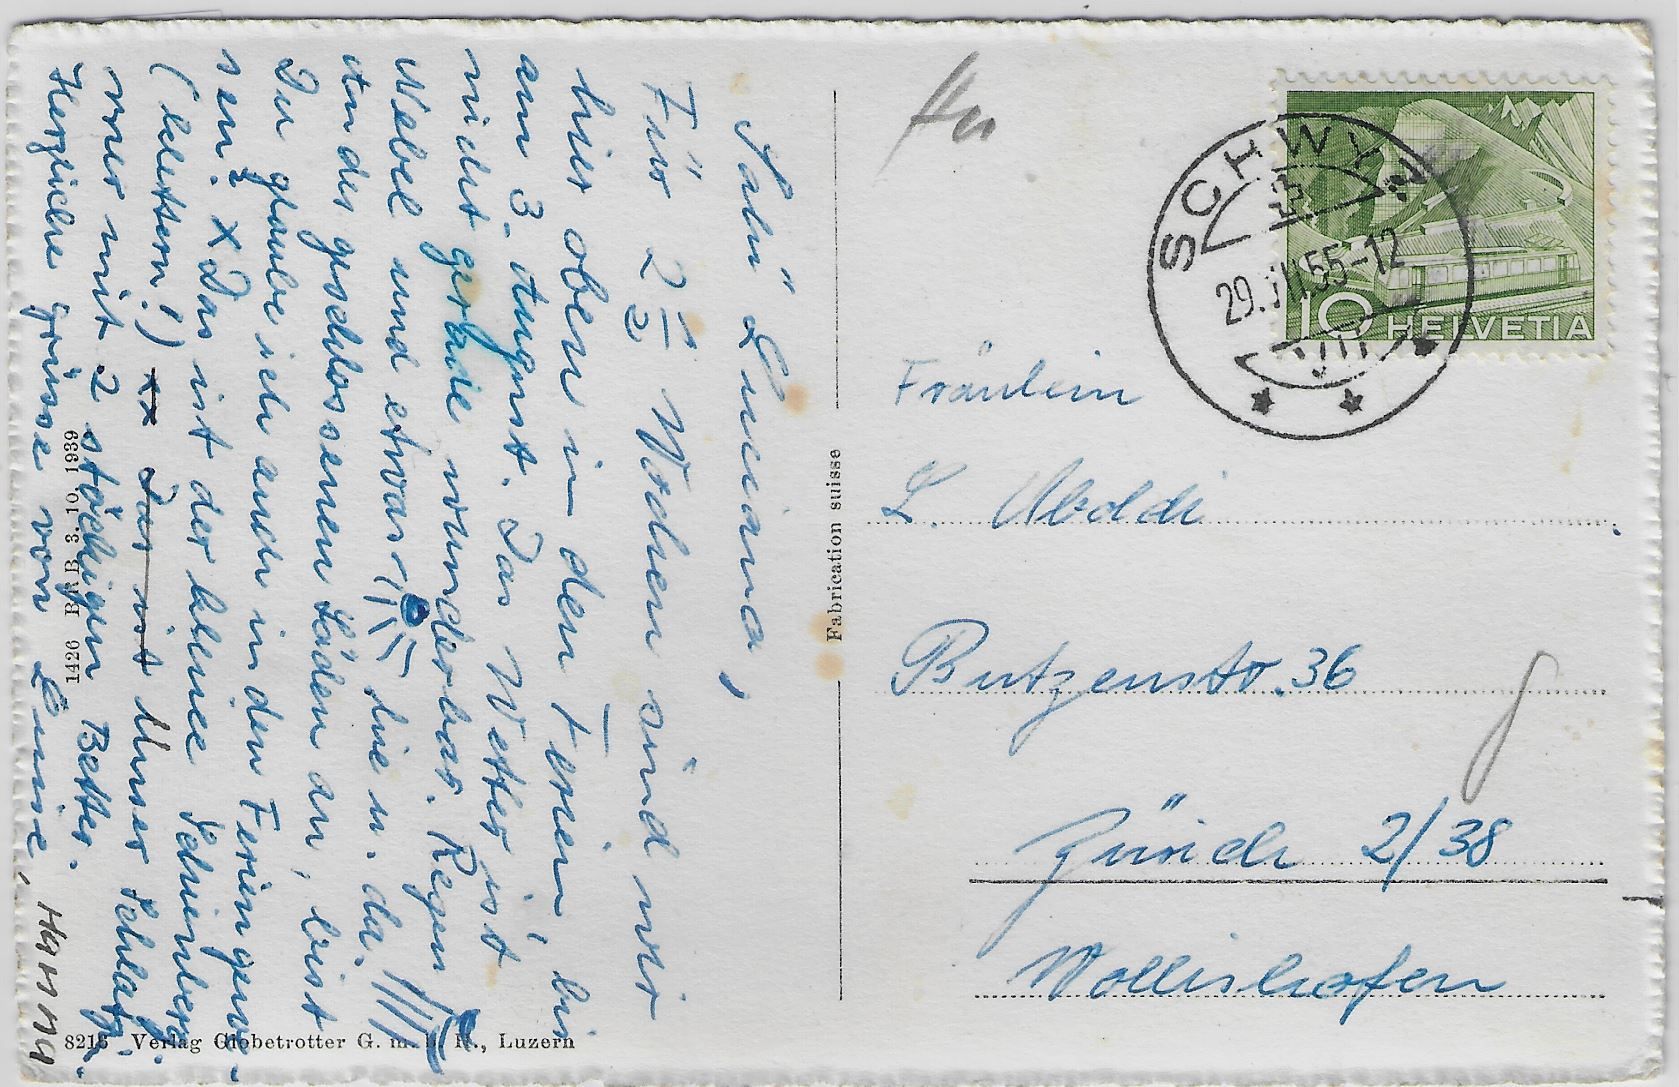 Salü Luciana,
Für 2 1/2 Wochen sind wir
hier oben in den Ferien, bis
am 3. August. Das Wetter ist
nicht gerade wunderbar. Regen
Nebel und etwas hie u. da.
An den geschlossenen Läden an, bist
Du glaube ich auch in den Ferien gewe-
sen? x Das ist der kleine Schienberg
(klettern!) xx Das ist Unser Schlafz.
mer mit 2 stöckigen Betten.
Herzliche Grüsse von Luise, Hanny
1426 BRB 3.10.1939
8215 Verlag Globetrotter G. m. b. H., Luzern
Fabrication suisse
SCHWYZ
29.VII.55-12
10 HELVETIA
Fräulein
L. Uboldi
Butzenstr. 36
Zürich 2/38
Wollishofen